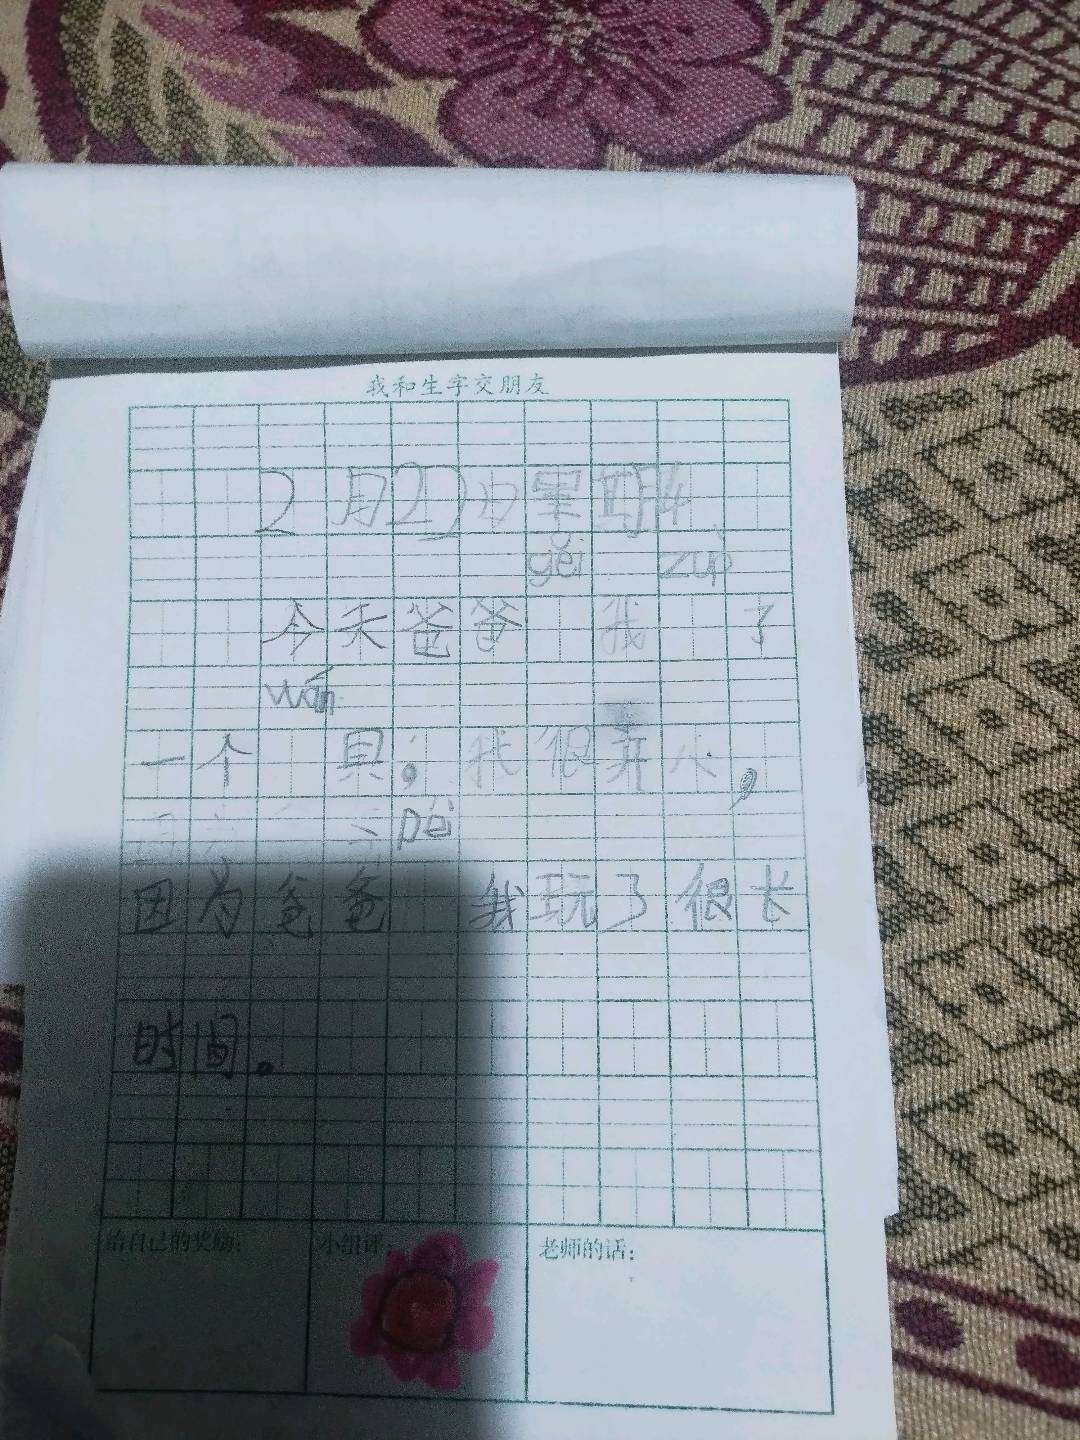 我和生字交朋友
2月22日星期4
gěi zuò
今天爸爸 我 了
wán
一个 具。我很开心，
péi
因为爸爸 我玩了很长
时间。
给自己的奖励： 小组评： 老师的话：